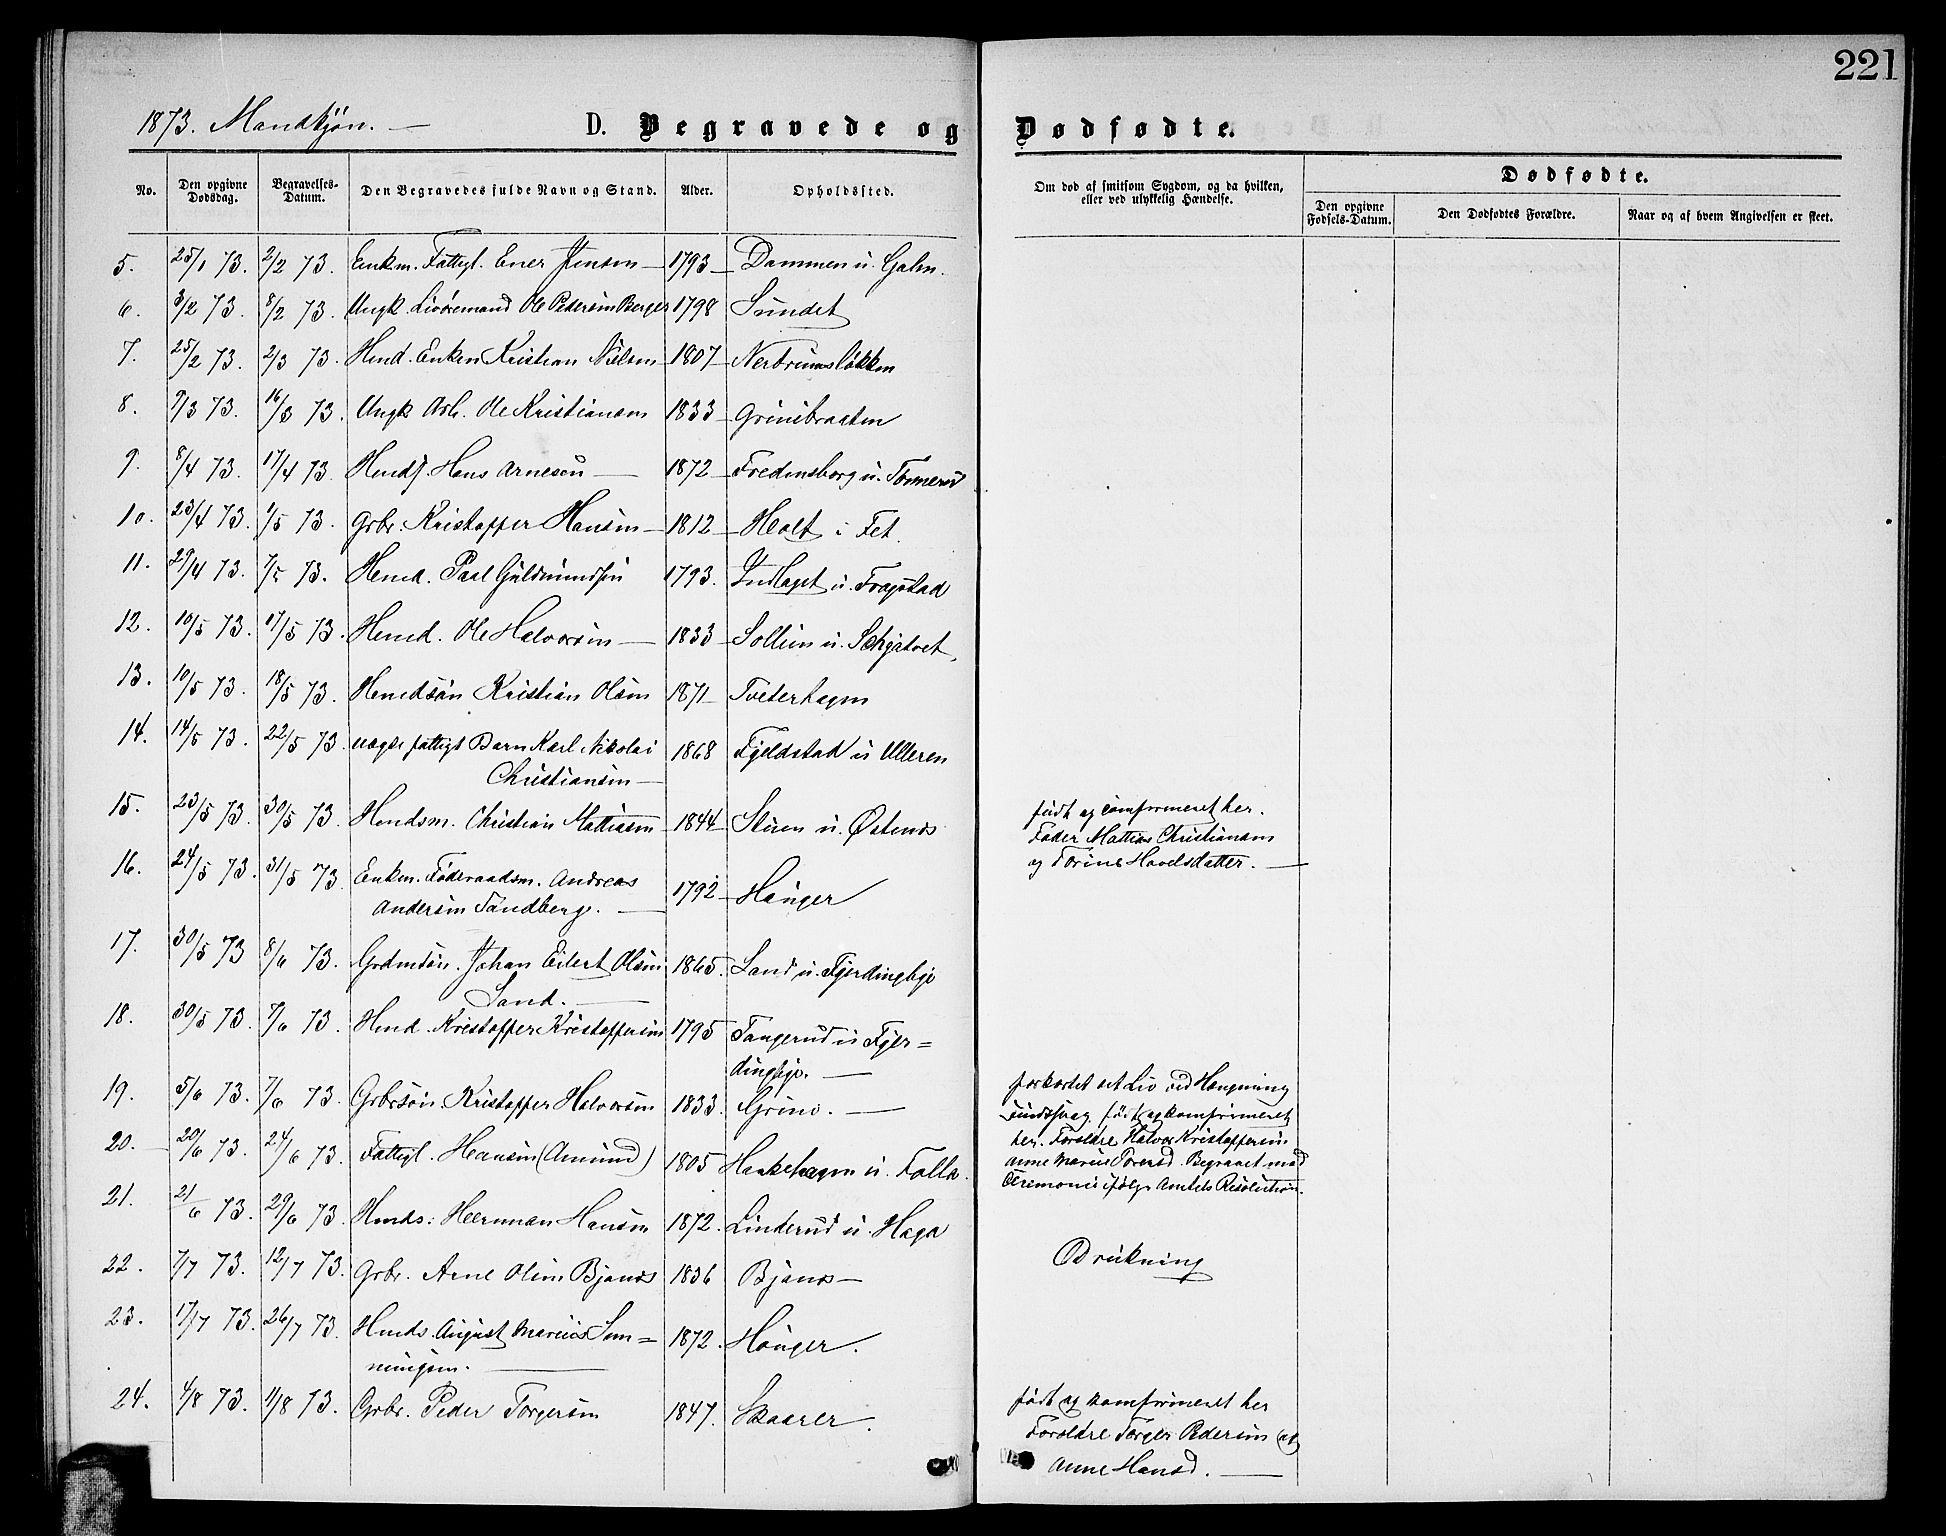 221
1873. Mandkjøn. —
D. Begravede og Dødfødte.
No. Den opgivne Dødsdag. Begravelses-Datum. Den Begravedes fulde Navn og Stand. Alder. Opholdssted. Om død af smitsom Sygdom, og da hvilken, eller ved ulykkelig Hændelse. Dødfødte.
Den opgivne Fødsels-Datum. Den Dødfødtes Forældre. Naar og af hvem Angivelsen er skeet.
5. 25/1 73. 2/2 73. Enkm. Fattigl. Ener Jenson — 1793 — Dammen u.
6. 3/2 73. 8/2 73. Ungk. Ole Pedersøn Berger 1798 Sundet
7. 25/2 73. 2/3 73. Hmd. Enkem Kristian Nielsen 1807 — Nerbrunsløkken
8. 9/3 73. 16/3 73. Ungk Arb. Ole Kristiansen 1833 — Grinibraaten
9. 8/4 73. 17/4 73. Hmdf. Hans Arnesen — 1872 — Fredensborg u. Tømmerud
10. 23/4 73. 1/5 73. Grbr. Kristoffer Hansen — 1812 — Holt i Fet.
11. 29/4 73. 7/5 73. Hmd. Paal Guldmundsen 1793. u. Frogstad
12. 10/5 73. 17/5 73. Hmd. Ole Halvorsen — 1833 — Sollien u.
13. 10/5 73. 18/5 73. Hmdsøn Kristian Olsen 1871 — Tveterhagen
14. 14/5 73. 22/5 73. uægte fattigt Barn Karl Nikolai 1868 Fjeldstad u Ulleren
Christiansen —
15. 23/5 73. 30/5 73. Hmdsm. Christian Mattiasen — 1844 — Stuen u. Østenss født og comfirmeret her.
Fader Mattias Christiansen
og Torine Havelsdatter. —
16. 24/5 73. 31/5 73. Enkm. Føderaadsm. Andreas 1792 — Hauger
Andersen Sandberg. —
17. 30/5 73 8/6 73. Grdmdsøn. Johan Eilert Olsen 1865. Sand u. Fjerdingbye
Sand. —
18. 30/5 73. 7/6 73. Hmd. Kristoffer Kristoffersen 1795 Tangerud u Fjer=
dingbye. —
19. 5/6 73. 7/6 73. Grbrsøn. Kristoffer Halvorsen 1833. Grini. — forkortet sit Liv ved Hængning
sindssvag. født og komfirmeret
her. Foreldre Halvor Kristoffersen
Anne Marie Toresd. Begravet med
Ceremonie ifølge Amtets Resolution.
20. — 20/6 73. 24/6 73. Fattigl. Hansen (Amund) 1805 Hankehagen u. Falla.
21. 21/6 73. 29/6 73. Hmds: Herman Hansen 1872. Linderud u. Haga
22. 7/7 73. 12/7 73. Grbr. Arne Olsen Bjanæs 1836 Bjanæs — Drukning
23. 17/7 73. 26/7 73. Hmds. August Marius Sem=
mingsen. — 1872. Hauger.
24. 4/8 73. 11/8 73. Grbr. Peder Torgersen 1847. Skaarer. født og komfirmeret her
Foreldre Torger Pedersen og
Anne Hansd. —